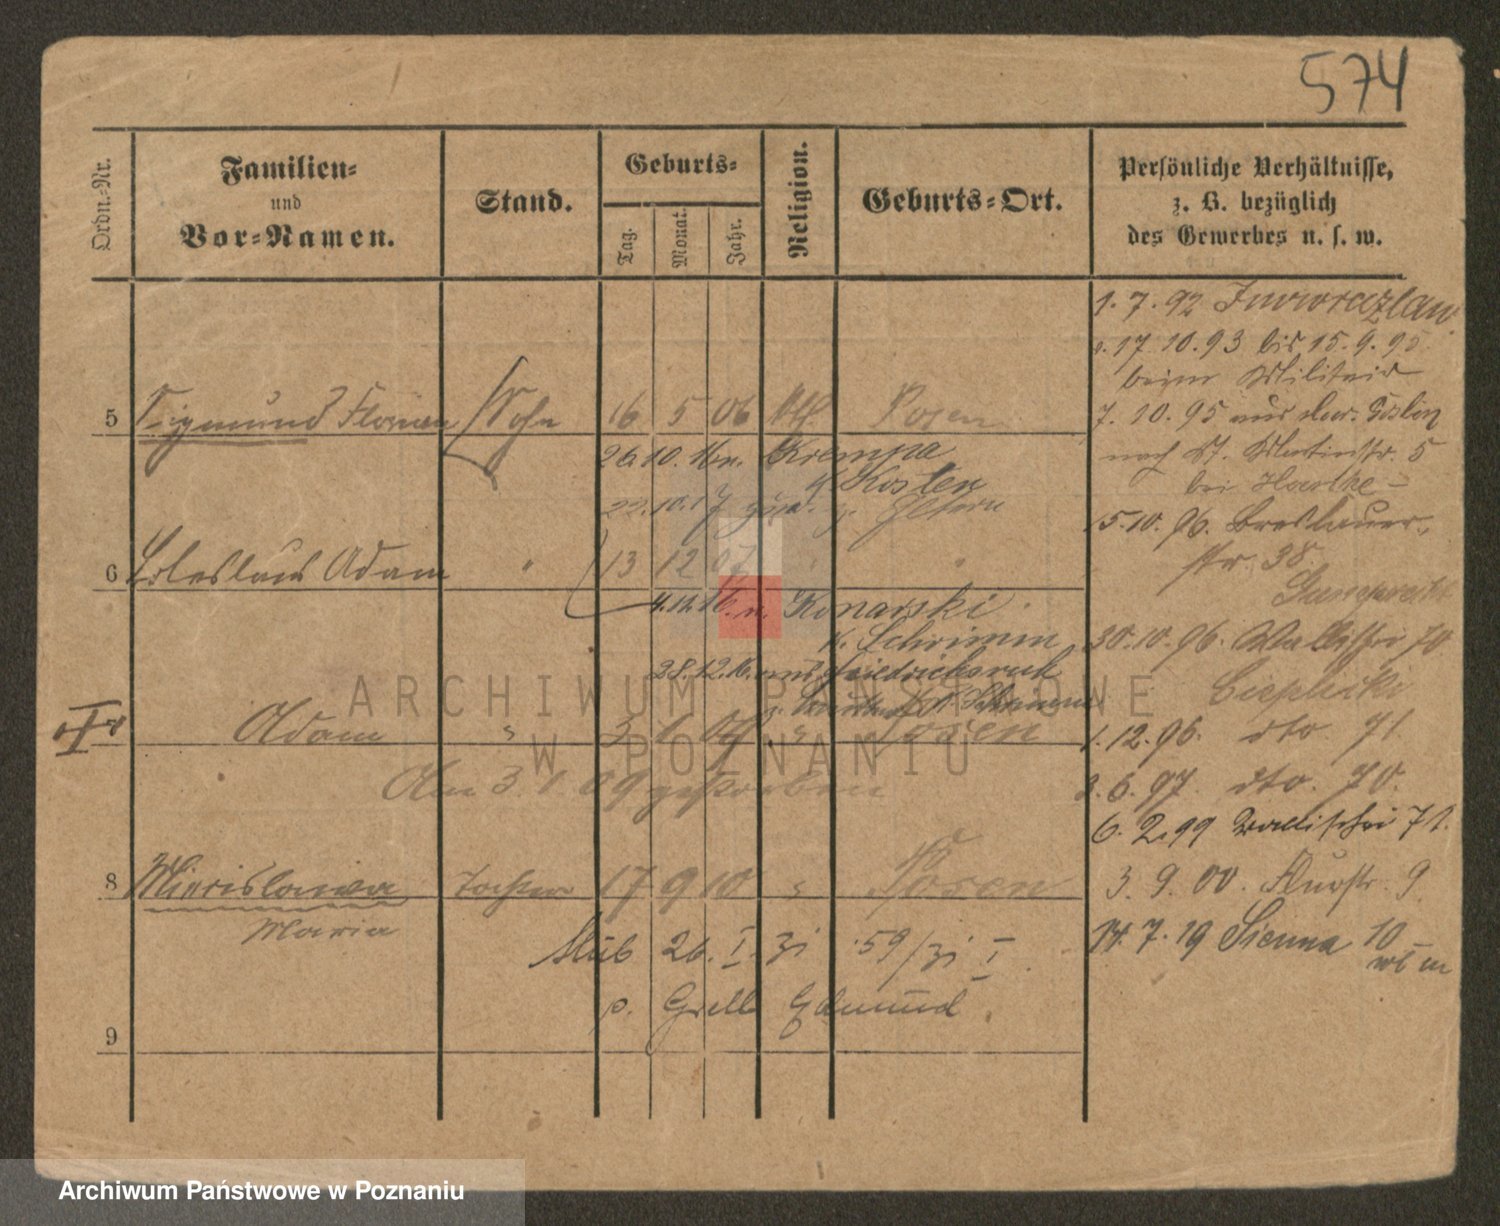 574
Ordn.-Nr.
Familien-
und
Vor-Namen.
Stand.
Geburts-
Tag.
Monat.
Jahr.
Religion.
Geburts-Ort.
Persönliche Verhältnisse,
z. B. bezüglich
des Gewerbes u. s. w.
5 Sigmund Florian Sohn 16 5 06 kth. Posen
26.10.16 n. Krempa
K. Kosten
22.10.17 zur. z. Eltern
6 Boleslaus Adam " 13 12 07 " "
4.12.16. n. Konarski
K. Schrimm
28.12.16. aus Friedrichsruh
Adam " 3 1 09 " Posen
Am 3.1.09 gestorben
8 Mierislawa Tochter 17 9 10 " Posen
Maria
Ślub 26. I. 31 59/31 I
p. Grell Edmund.
9
1.7.92 Inowrazlaw
v. 17.10.93 bis 15.9.95
beim Militair
7.10.95 aus
nach St. Martinstr. 5
bei
15.10.96. Breslauer-
str 38.
30.10.96. Wallischei 70
Cieplicki
1.12.96. dto. 71.
3.6.97. dto. 70.
6.2.99 Wallischei 71.
3.9.00. Flurstr. 9
14.7.19 Sienna 10
ARCHIWUM PAŃSTWOWE
W POZNANIU
Archiwum Państwowe w Poznaniu